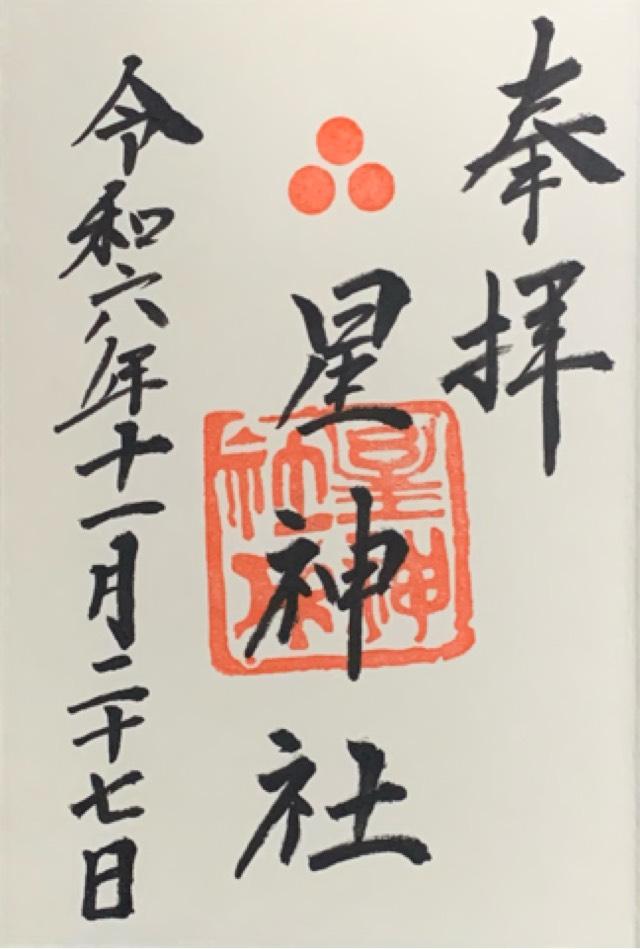 奉拝
星神社
星神社印
令和六年十一月二十七日